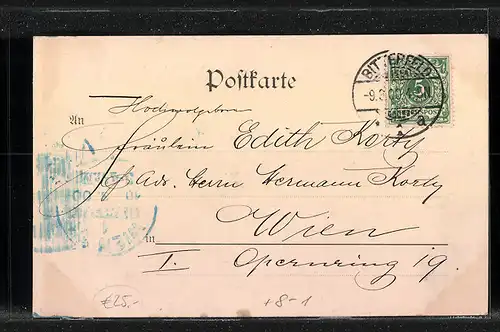 BITTERFELD
5
Postkarte
-9.3.00
a
Hochwolgeboren
An
Fräulein Edith Korty
Adr. Herrn Hermann Korty
in Wien
I. Opernring 19.
€25.-
+8-1